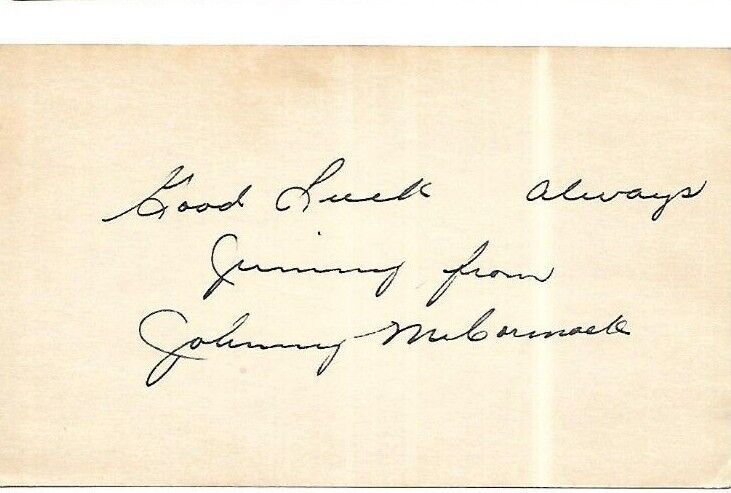 Good Luck always
Jimmy from
Johnny McCormack